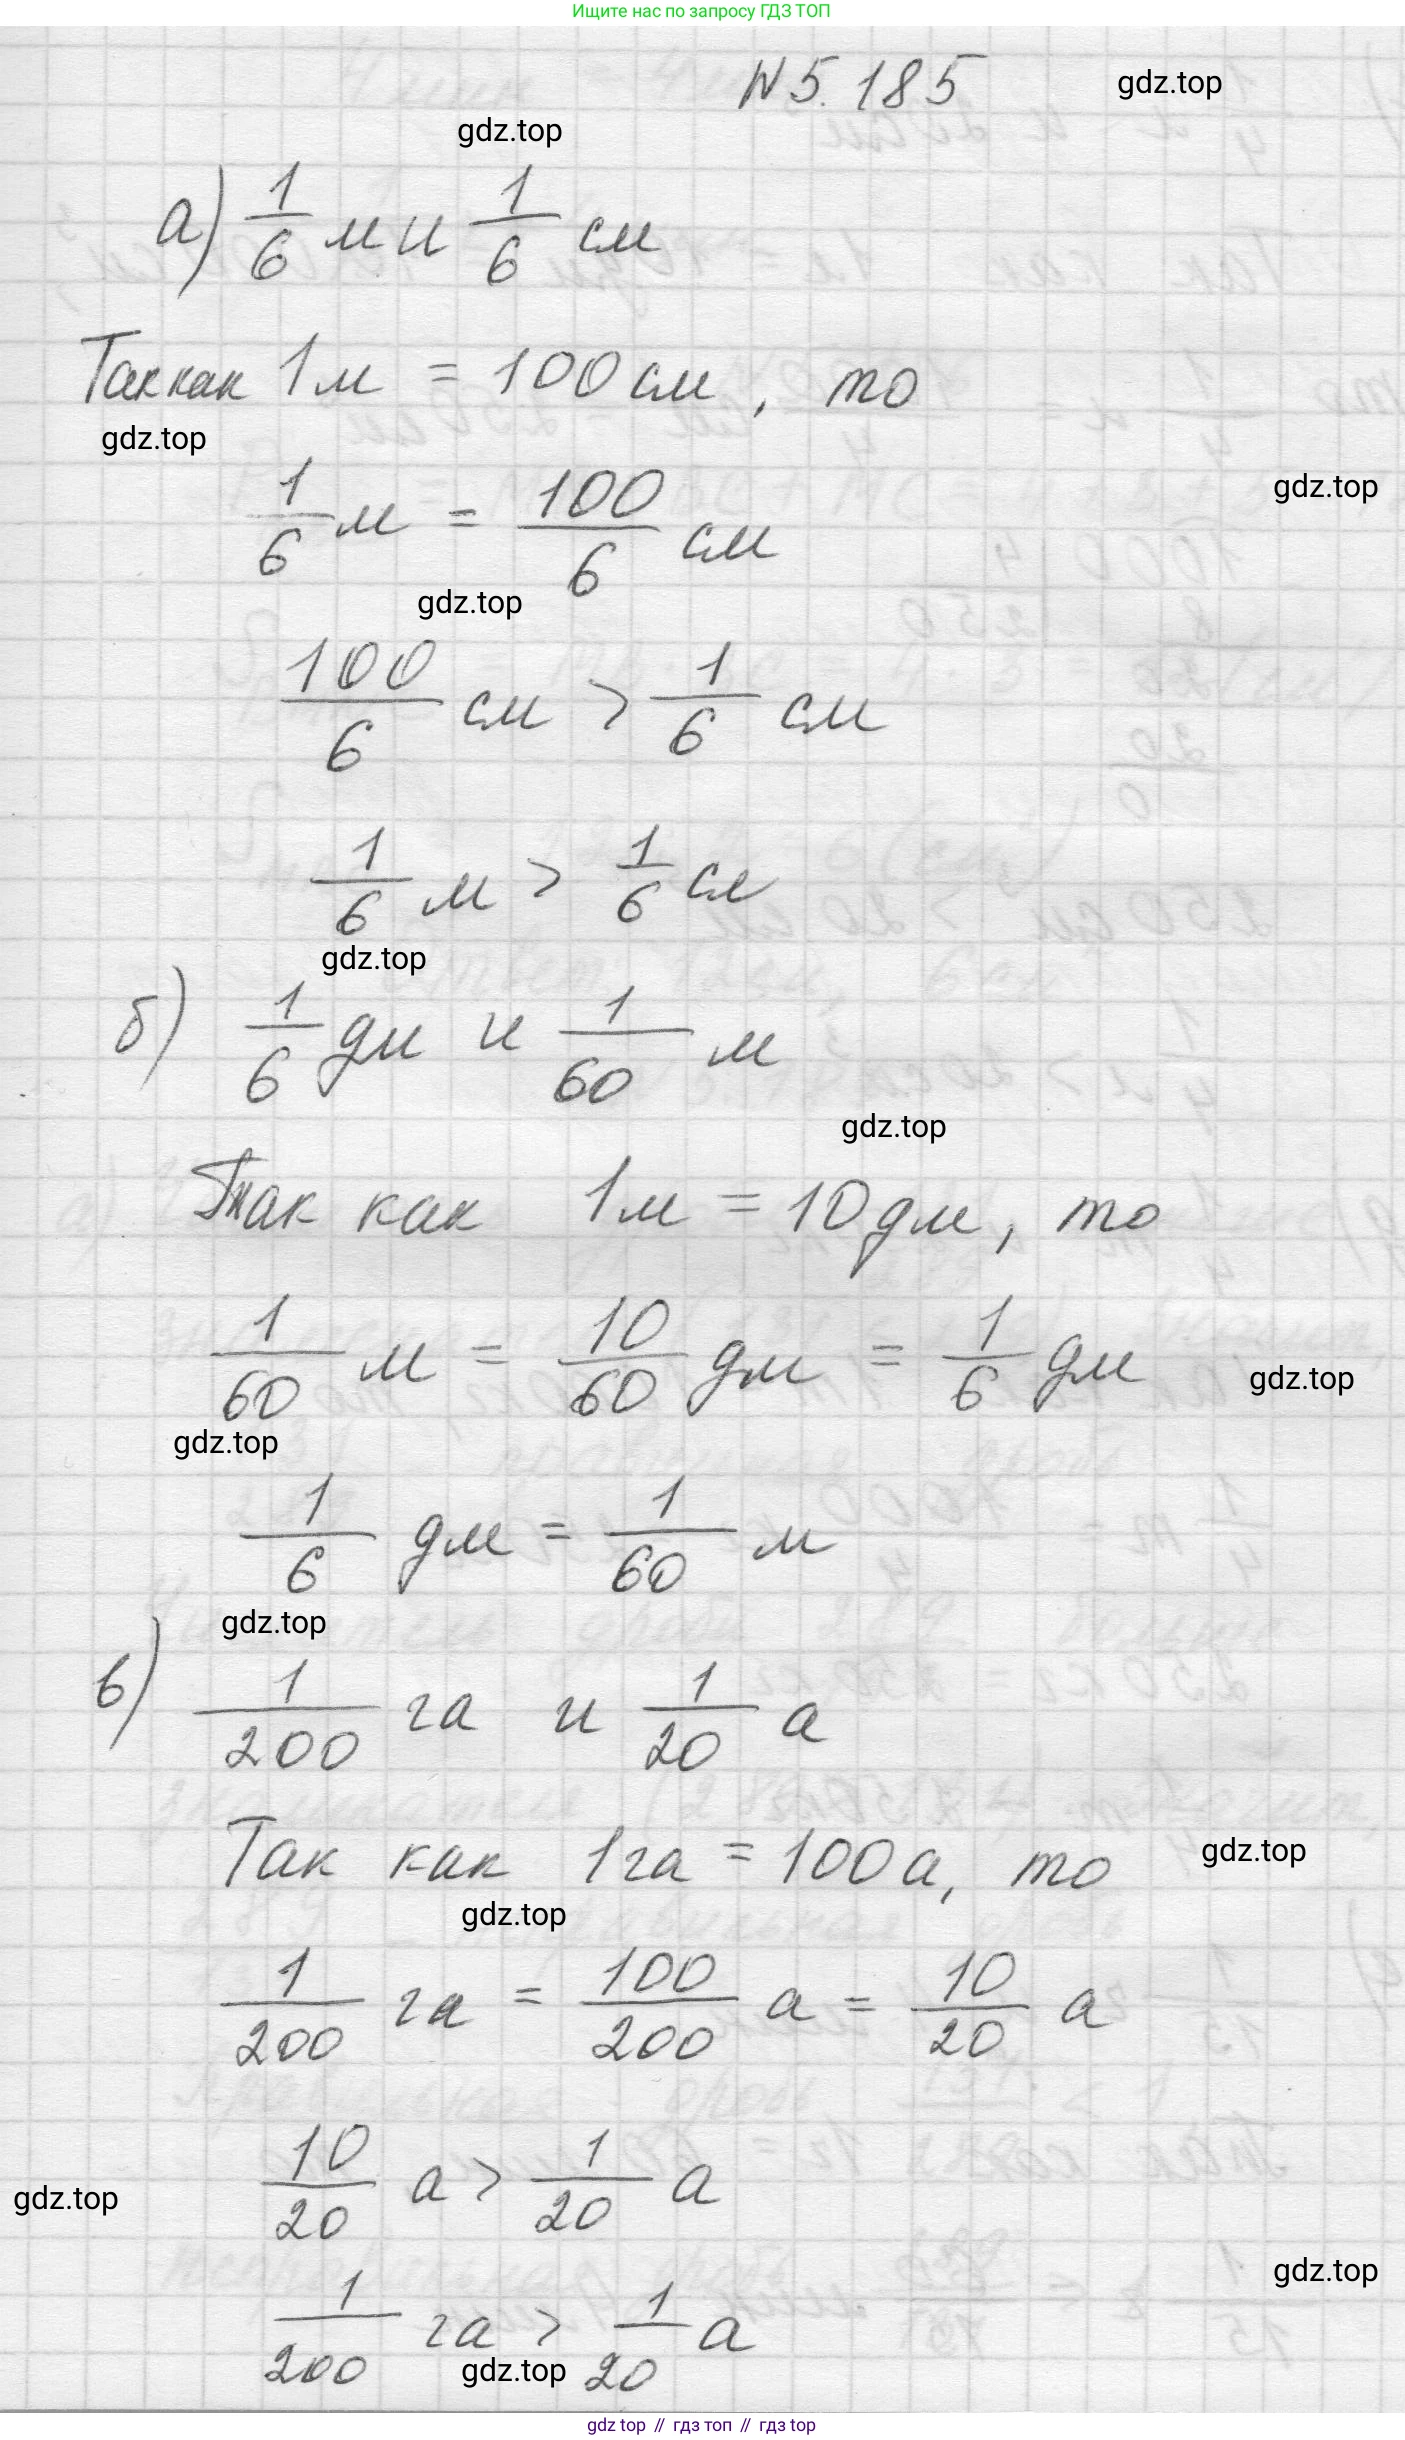 Ищите нас по запросу ГДЗ ТОП
N 5.185
gdz.top
gdz.top
а) 1/6 м и 1/6 см
Так как 1м = 100 см, то
gdz.top
gdz.top
1/6 м = 100/6 см
gdz.top
100/6 см > 1/6 см
1/6 м > 1/6 см
gdz.top
б) 1/6 дм и 1/60 м
gdz.top
Так как 1м = 10 дм, то
1/60 м = 10/60 дм = 1/6 дм
gdz.top
gdz.top
1/6 дм = 1/60 м
gdz.top
в) 1/200 га и 1/20 а
Так как 1га = 100 а, то
gdz.top
gdz.top
1/200 га = 100/200 а = 10/20 а
10/20 а > 1/20 а
gdz.top
gdz.top
1/200 га > 1/20 а
gdz.top
gdz top // гдз топ // гдз top